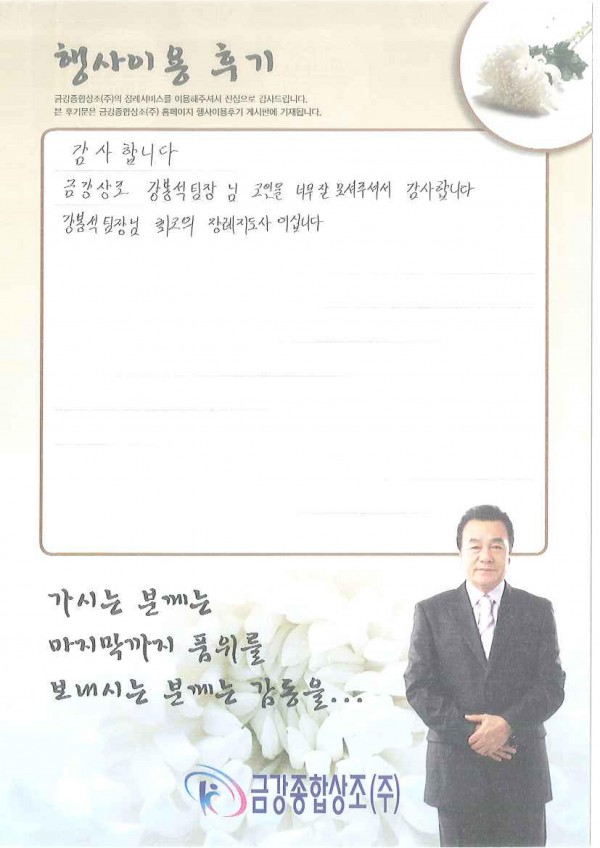 행사이용 후기
금강종합상조(주)의 장례서비스를 이용해주셔서 진심으로 감사드립니다.
본 후기문은 금강종합상조(주) 홈페이지 행사이용후기 게시판에 기재됩니다.
감사합니다
금강상조 강봉석팀장 님 고인을 너무 잘 모셔주셔서 감사합니다
강봉석 팀장님 최고의 장례지도사 이십니다
가시는 분께는
마지막까지 품위를
보내시는 분께는 감동을...
금강종합상조(주)